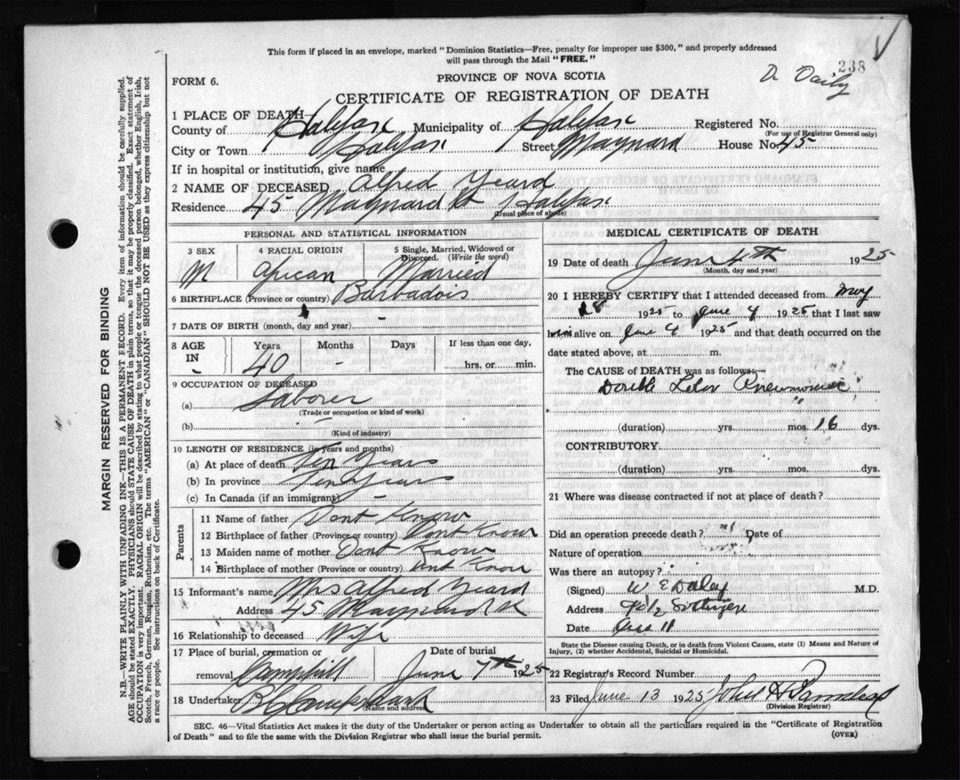 This form if placed in an envelope, marked "Dominion Statistics—Free, penalty for improper use $300," and properly addressed
will pass through the Mail "FREE."
238
D. Daily
FORM 6.
PROVINCE OF NOVA SCOTIA
CERTIFICATE OF REGISTRATION OF DEATH
1 PLACE OF DEATH
County of Halifax Municipality of Halifax Registered No.
(For use of Registrar General only)
City or Town Halifax Street Maynard House No. 45
If in hospital or institution, give name
2 NAME OF DECEASED Alfred Yeard
Residence 45 Maynard St Halifax
(Usual place of abode)
PERSONAL AND STATISTICAL INFORMATION
3 SEX 4 RACIAL ORIGIN 5 Single, Married, Widowed or Divorced. (Write the word)
M African Married
6 BIRTHPLACE (Province or country) Barbadois
7 DATE OF BIRTH (month, day and year)
8 AGE IN Years Months Days If less than one day,
40 - hrs. or min.
9 OCCUPATION OF DECEASED
(a) Laborer
(Trade or occupation or kind of work)
(b)
(Kind of industry)
10 LENGTH OF RESIDENCE (in years and months)
(a) At place of death Ten Years
(b) In province Ten Years
(c) In Canada (if an immigrant) -
Parents
11 Name of father Dont Know
12 Birthplace of father (Province or country) Dont Know
13 Maiden name of mother Dont Know
14 Birthplace of mother (Province or country) Dont Know
15 Informant's name Mrs Alfred Yeard
Address 45 Maynard St
16 Relationship to deceased Wife
17 Place of burial, cremation or removal Camphill
Date of burial June 7th 1925
18 Undertaker
(Name and address)
MEDICAL CERTIFICATE OF DEATH
19 Date of death June 4th 1925
(Month, day and year)
20 I HEREBY CERTIFY that I attended deceased from May
18 1925 to June 4 1925 that I last saw
him alive on June 4 1925 and that death occurred on the
date stated above, at m.
The CAUSE OF DEATH was as follows:—
Double Lobar Pneumonia
(duration) yrs. mos. 16 dys.
CONTRIBUTORY
(duration) yrs. mos. dys.
21 Where was disease contracted if not at place of death?
Did an operation precede death? Date of
Nature of operation
Was there an autopsy?
(Signed) W. E. Daley M.D.
Address
Date 11
State the Disease causing Death, or in death from Violent Causes, state (1) Means and Nature of
Injury, (2) whether Accidental, Suicidal or Homicidal.
22 Registrar's Record Number
23 Filed June 13 1925 John H
(Division Registrar)
SEC. 46—Vital Statistics Act makes it the duty of the Undertaker or person acting as Undertaker to obtain all the particulars required in the "Certificate of Registration
of Death" and to file the same with the Division Registrar who shall issue the burial permit.
(OVER)
MARGIN RESERVED FOR BINDING
N.B.—WRITE PLAINLY WITH UNFADING INK—THIS IS A PERMANENT RECORD. Every item of information should be carefully supplied.
AGE should be stated EXACTLY. PHYSICIANS should STATE CAUSE OF DEATH in plain terms, so that it may be properly classified. Exact statement of
OCCUPATION is very important. RACIAL ORIGIN will be described by stating to what people or tongue the deceased person belonged, whether English, Irish,
Scotch, French, German, Russian, Ruthenian, etc. The terms "AMERICAN" or "CANADIAN" SHOULD NOT BE USED as they express citizenship but not
a race or people. See instructions on back of Certificate.